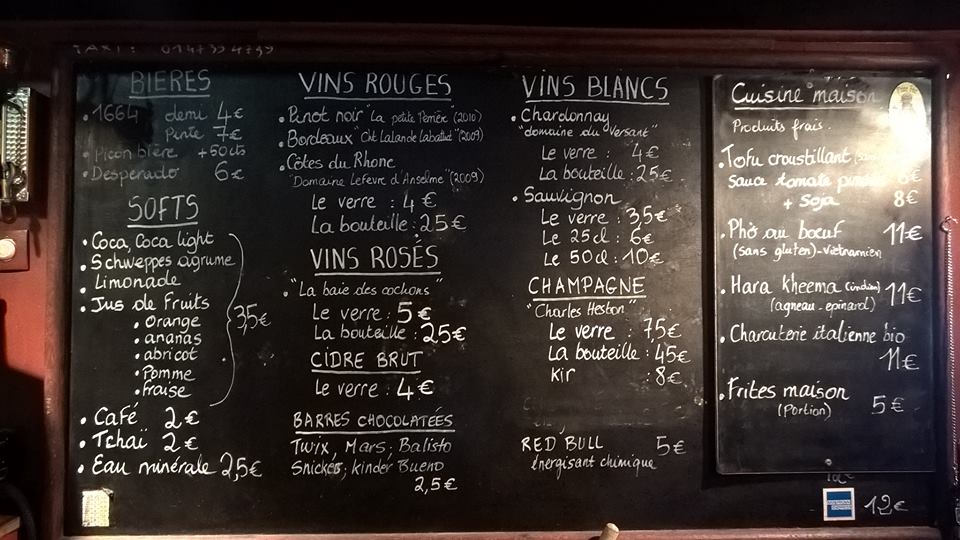 TAXI : 0147394799
BIERES
. 1664 demi 4€
Pinte 7€
. Picon bière +50cts
. Desperado 6€
SOFTS
. Coca, Coca light
. Schweppes agrume
. Limonade
. Jus de Fruits
. Orange
. ananas
. abricot
. Pomme
. Fraise
3,5€
. Café 2€
. Tchaï 2€
. Eau minérale 2,5€
VINS ROUGES
. Pinot noir "La petite Perrière" (2010)
. Bordeaux "Cht Lalande Labatut" (2009)
. Côtes du Rhone
"Domaine Lefevre d'Anselme" (2009)
Le verre : 4€
La bouteille : 25€
VINS ROSÉS
. "La baie des cochons"
Le verre : 5€
La bouteille : 25€
CIDRE BRUT
Le verre : 4€
BARRES CHOCOLATÉES
Twix, Mars, Balisto
Snickers, kinder Bueno
2,5€
VINS BLANCS
. Chardonnay
"domaine du Versant"
Le verre : 4€
La bouteille : 25€
. Sauvignon
Le verre : 3,5€
Le 25cl : 6€
Le 50cl : 10€
CHAMPAGNE
"Charles Heston"
Le verre : 7,5€
La bouteille : 45€
Kir : 8€
RED BULL 5€
énergisant chimique
Cuisine maison
Produits frais.
. Tofu croustillant
sauce tomate 6€
+ Soja 8€
. Phò au bœuf 11€
(sans gluten)-vietnamien
. Hara kheema (indien) 11€
(agneau-epinard)
. Charcuterie italienne bio
11€
. Frites maison
(Portion) 5€
12€